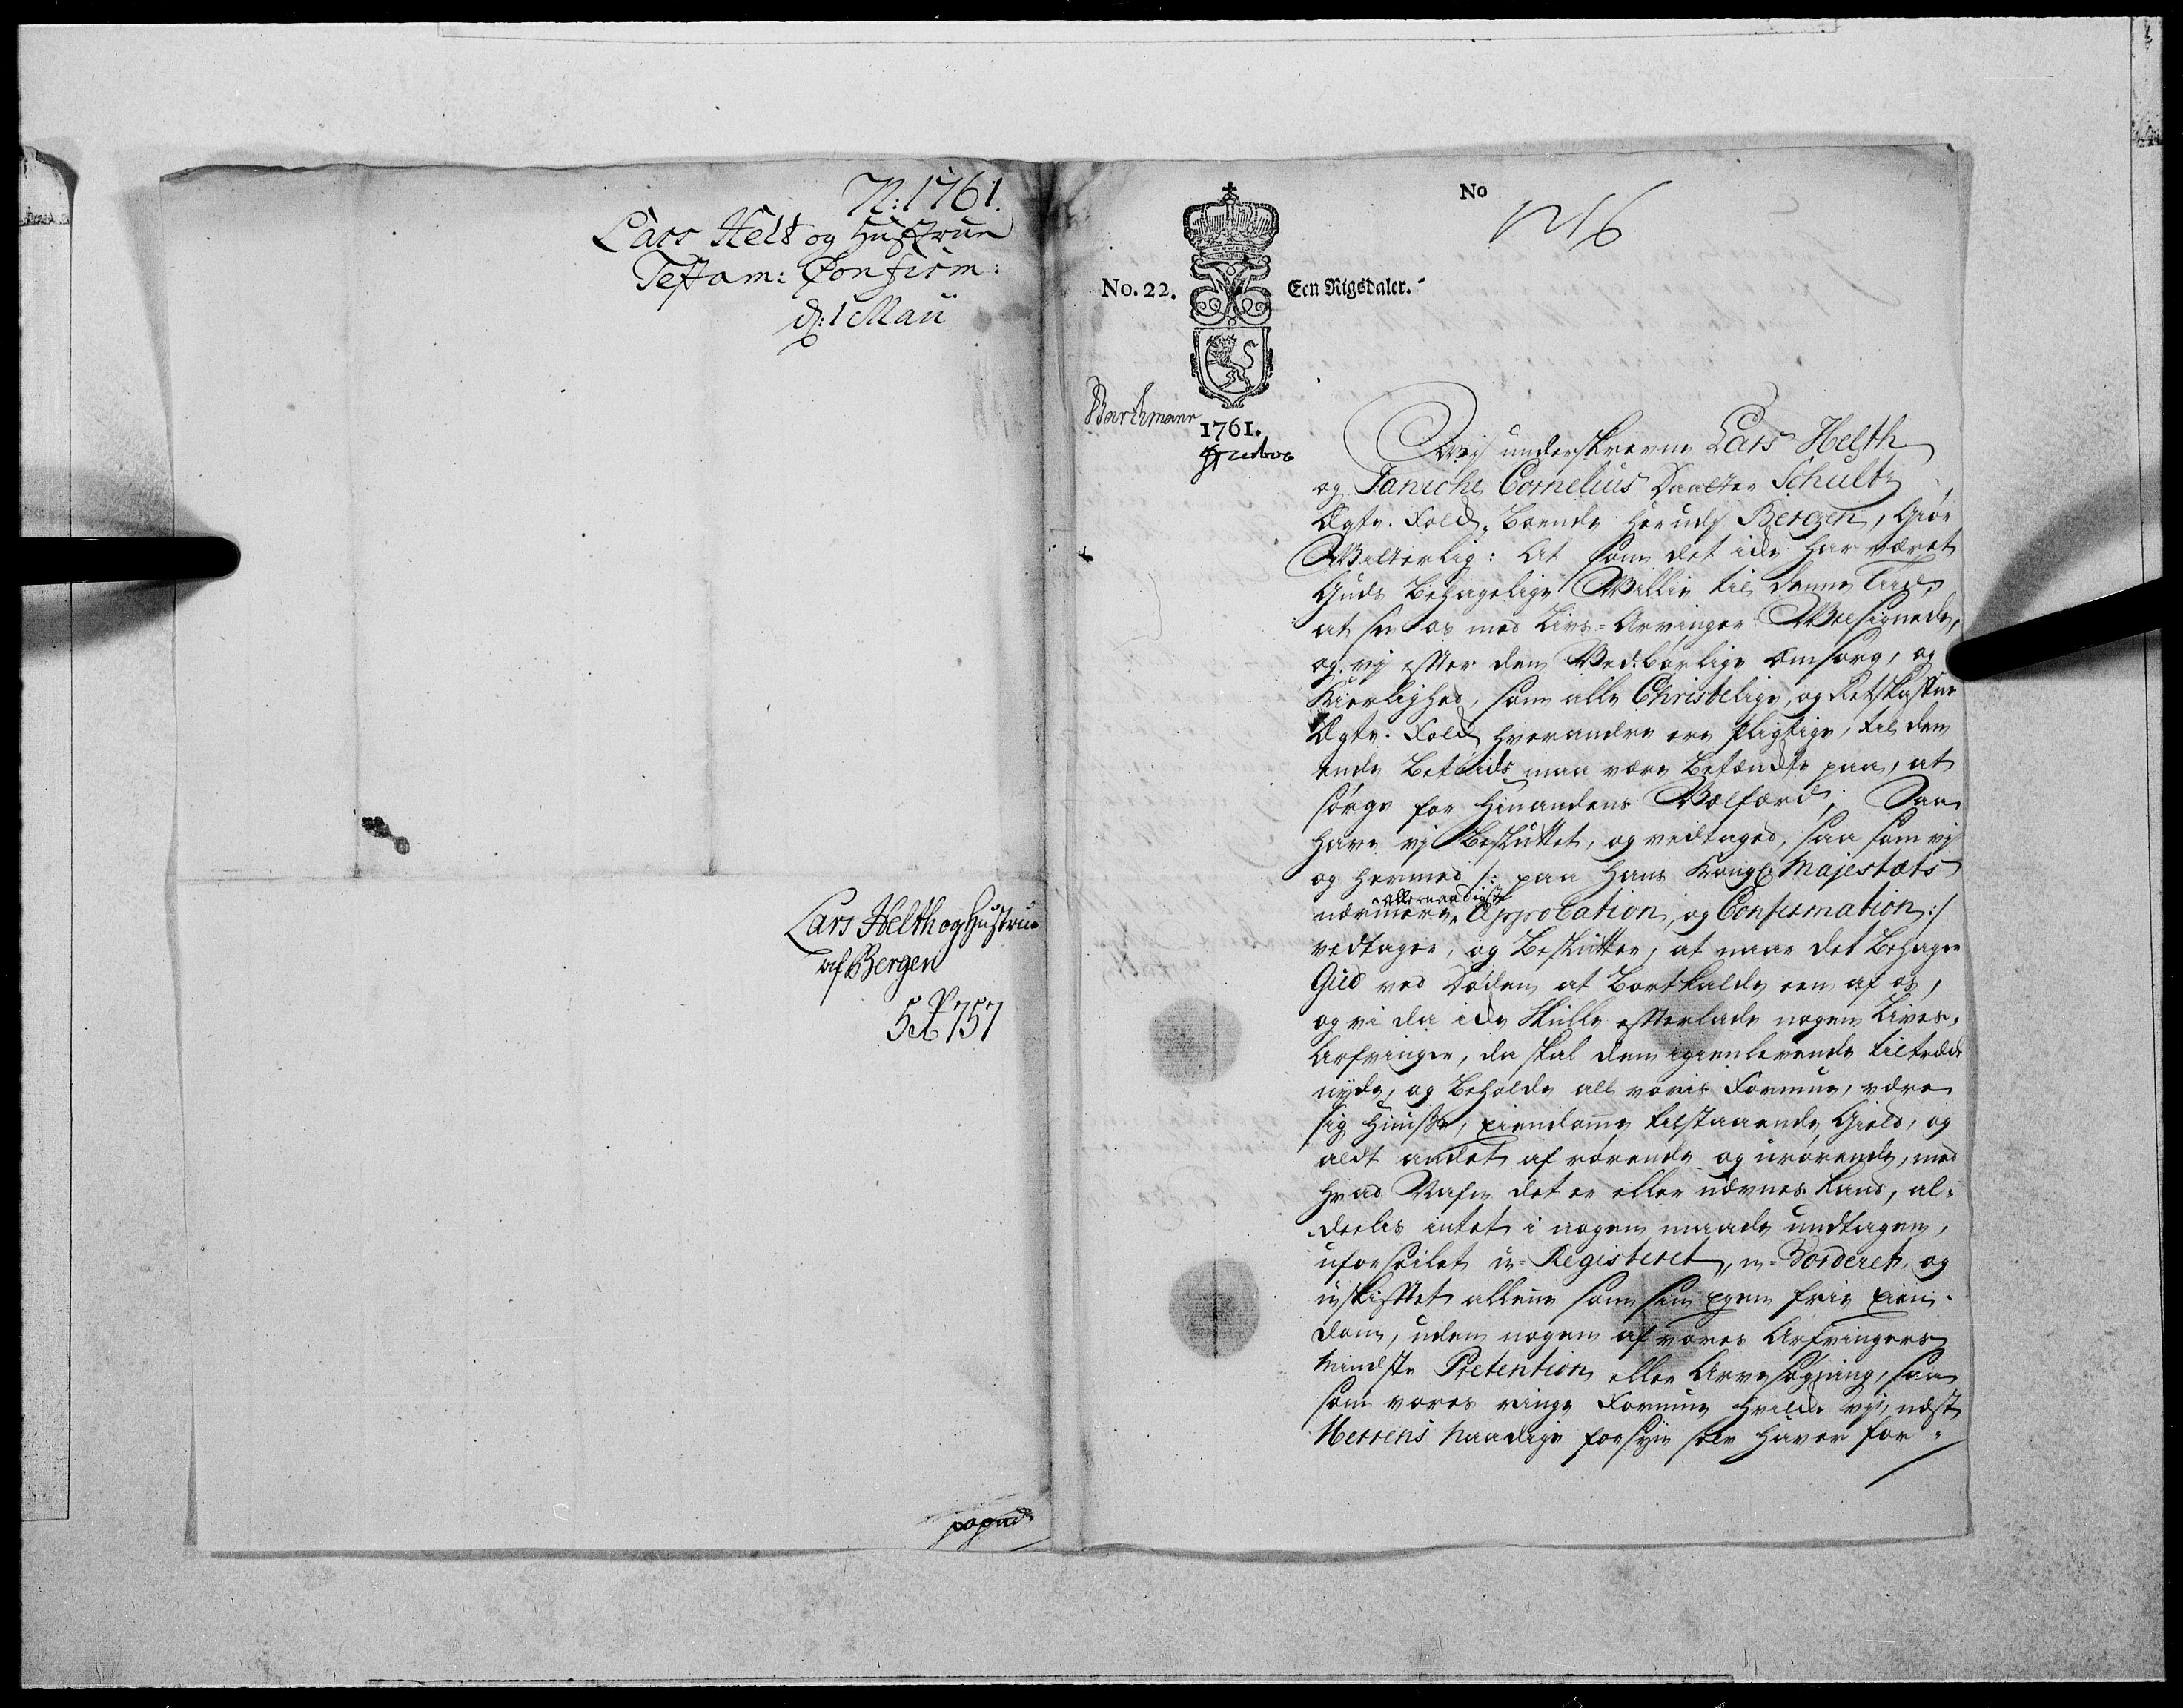 N: 1761.
Lars Helt og Hustrue
Testam: Confirm:
d: 1 Maii
Lars Helth og Hustrue
af Bergen
757
No
No. 22.
Een Rigsdaler.
1761.
Vij underskrevne Lars Helth
og Janiche Cornelius Daatter Schultz
Ægte-Folk, boende her udj Bergen, Giør
Vitterlig: At som det icke har været
Guds behagelige Villie til denne Tiid,
at see os med Livs-Arvinger Velsignede,
og vij efter den Vedbørlige omsorg, og
Kierlighed, som alle Christelige, og Retskafne
Ægte-Folk hverandre ere pligtige, til den
ende betids maa være betænckte paa, at
sørge for hinandens Velfærd; Saa
have vj besluttet, og vedtaged, saa som vj
og hermed /: paa Hans Kongl: Majestæts
allernaadigste
nærmere Approbation, og Confirmation :/
vedtager, og beslutter, at naar det behager
Gud ved Døden at bortkalde een af os,
og vi da icke skulle efterlade nogen Livs-
Arfvinger, da skal den igienlevende tiltræde
nyde, og beholde all voris Formue, være
sig Huuse, eiendomme tilstaaende Gield, og
aldt andet af rørende og urørende, med
hvad Nafn det er eller nævnes kand, al-
deeles intet i nogen maade undtagen,
uforseilet u-Registeret, u-Vorderet, og
uskiftet allene som sin egen frie eien-
dom, uden nogen af voris Arfvingers
mindste Prætention eller Arve søgning, saa
som vores ringe Formue hvilcken vj, næst
Herrens Naadige forsyn selv haver for-